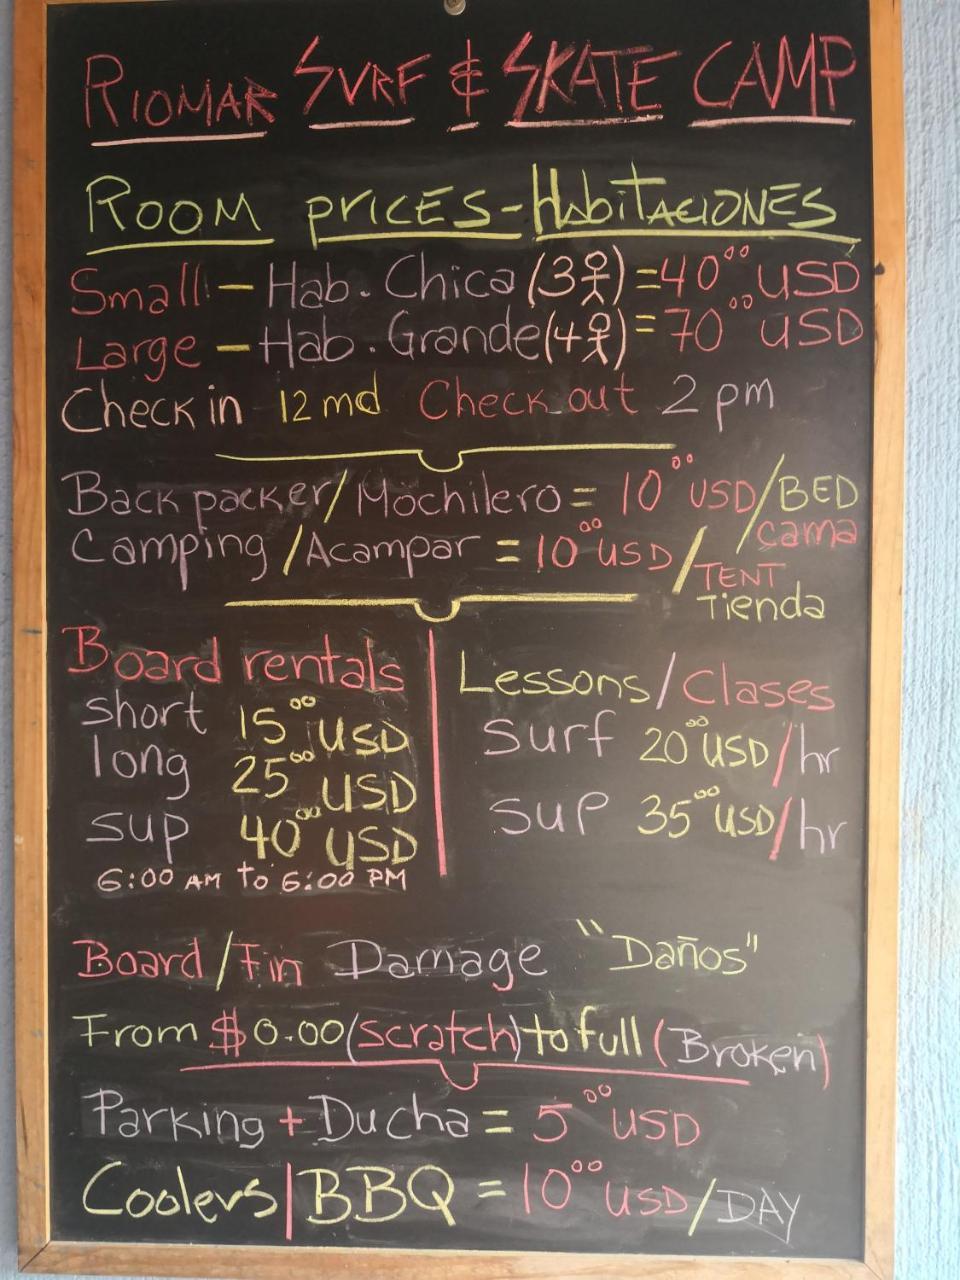 RIOMAR SURF & SKATE CAMP
ROOM PRICES - HABITACIONES
Small - Hab. Chica (3) = 40.00 USD
Large - Hab. Grande (4) = 70.00 USD
Check in 12 md Check out 2 pm
Back packer / Mochilero = 10.00 USD / BED / cama
Camping / Acampar = 10.00 USD / TENT Tienda
Board rentals
short 15.00 USD
long 25.00 USD
sup 40.00 USD
6:00 AM to 6:00 PM
Lessons / Clases
Surf 20.00 USD / hr
sup 35.00 USD / hr
Board / Fin Damage "Daños"
From $0.00 (scratch) to full (Broken)
Parking + Ducha = 5.00 USD
Coolers | BBQ = 10.00 USD / DAY